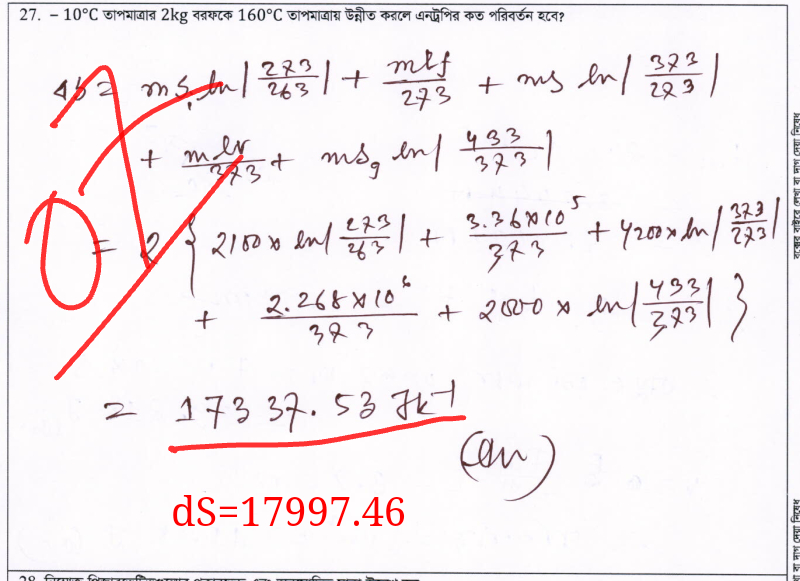 27. – 10°C তাপমাত্রার 2kg বরফকে 160°C তাপমাত্রায় উন্নীত করলে এনট্রপির কত পরিবর্তন হবে?
ds = ms_i ln|273/263| + mlf/273 + ms ln|373/273|
+ mlv/373 + ms_g ln|433/373|
0
= 2 { 2100 × ln|273/263| + 3.36×10^5/373 + 4200×ln|373/273|
+ 2.268×10^6/373 + 2000 × ln|433/373| }
= 17337.53 Jk^-1
(Ans)
dS=17997.46